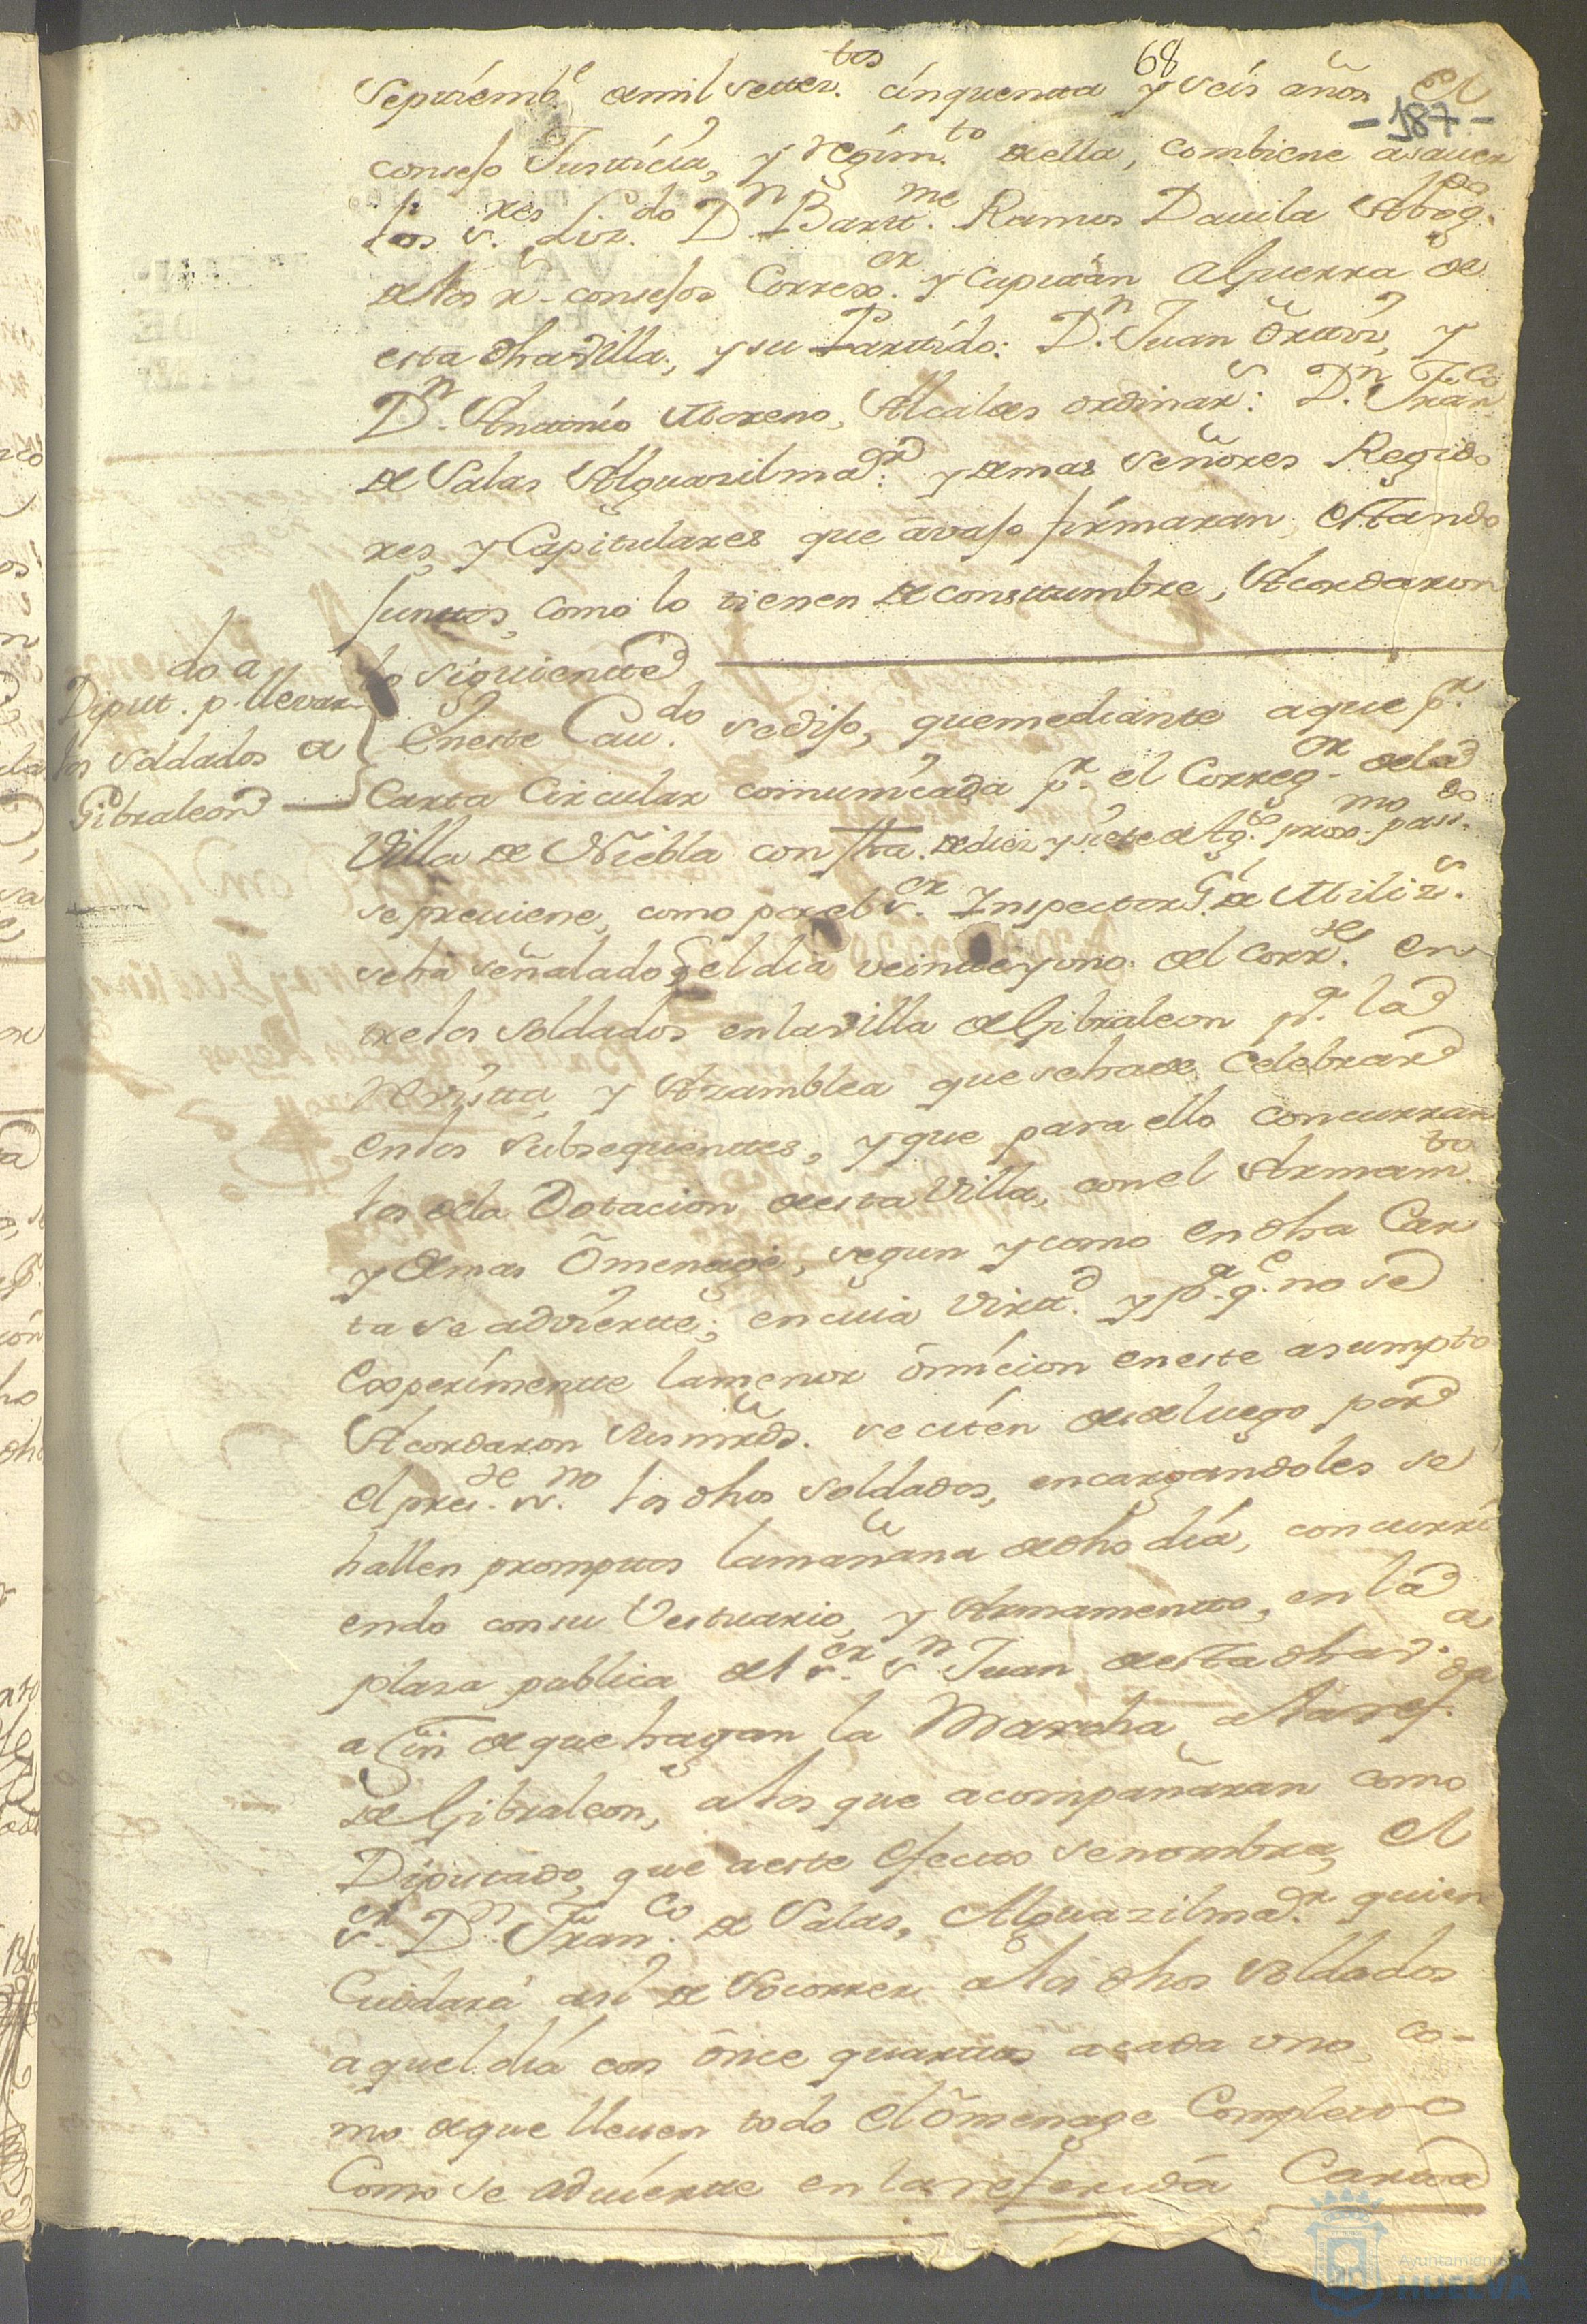 68
-187-
Septiemb.e de mil setez.tos cinquenta y seis años El
consejo Justicia, y regim.to de ella, combiene a sauer
los s.res Liz.do D.n Bartt.me Ramos Dauila Abog.do
de los r.s consejos Correx.or y Capitan a Guerra de
esta dha Villa, y su Partido: D.n Juan Orttiz, y
D.n Antonio Moreno, Alcaldes ordinar.s: D.n Fran.co
de Salas Alguazil ma.or y demas Señores Regido
res, y Capitulares que avajo firmaran, estando
Junttos, como lo tienen de consttumbre, Acordaron
lo siguientte
Diput.do p.a llevar
los soldados a
Gibraleon
En este Cau.do se dijo, que mediante a que p.r
Carta Circular comunicada p.r el Correg.or de la
Villa de Niebla con fha. de diez y siete de Ag.to prox.mo pass.do
se preuiene, como por el s.or Inspector G.l de Miliz.s
se ha señalado el dia veintte y uno del corr.te en
tre los soldados en la villa de Gibraleon p.a la
Revistta y Azamblea que se ha de Celebrar
en los subsequenttes, y que para ello concurran
los de la Dotacion de esta Villa, con el Armam.to
y demas Omenage, segun y como en dha Car
ta se advierte; en cuia virtt.d y p.a q.e no se
Experimentte la menor omicion en este asumpto
Acordaron sus mrds. se citen desde luego por
el pres.te ss.no los dhos soldados, encargandoles se
hallen promptos la mañana de dho dia, concurri
endo con su Vestuario, y Armamentto, en la
plaza publica del s.or s.n Juan de esta dha v.a
a fin de que hagan la Marcha a la ref.da
de Gibraleon, a los que acompañaran como
Diputado, que a este efectto se nombra, El
s.or D.n Fran.co de Salas, Alguazil ma.or quien
Cuidará asi de Socorrer a los dhos soldados
aquel dia con once quarttos a cada uno, co-
mo de que lleuen todo el omenage Completo
Como se adviertte en la referida Cartta
Ayuntamiento
HUELVA